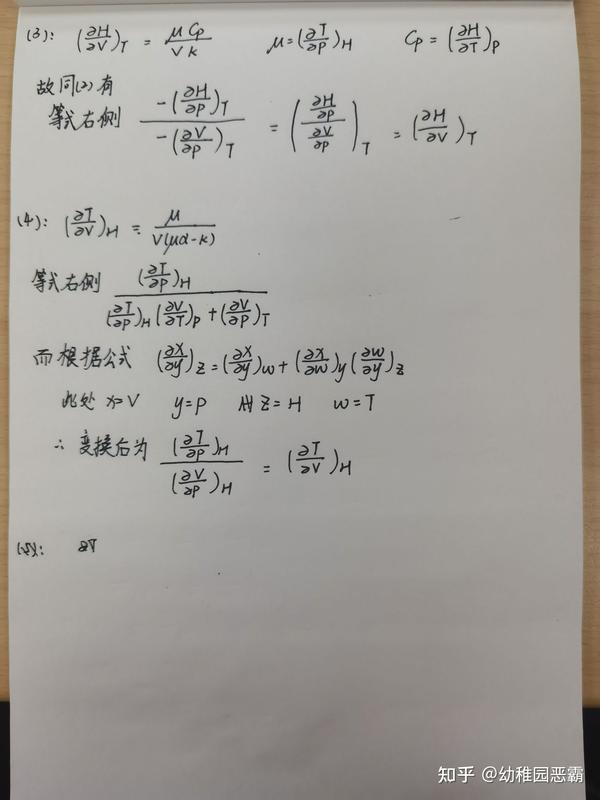 (3): (∂H/∂V)_T = μ Cp / V κ    μ = (∂T/∂P)_H    Cp = (∂H/∂T)_P
故同(2)有
等式右侧 -(∂H/∂P)_T / -(∂V/∂P)_T = ((∂H/∂P) / (∂V/∂P))_T = (∂H/∂V)_T
(4): (∂T/∂V)_H = μ / V(μα-κ)
等式右侧 (∂T/∂P)_H / (∂T/∂P)_H (∂V/∂T)_P + (∂V/∂P)_T
而根据公式 (∂X/∂y)_Z = (∂X/∂y)_W + (∂X/∂W)_y (∂W/∂y)_Z
此处 x=V  y=P  Z=H  W=T
∴ 变换后为 (∂T/∂P)_H / (∂V/∂P)_H = (∂T/∂V)_H
∂V
知乎 @幼稚园恶霸